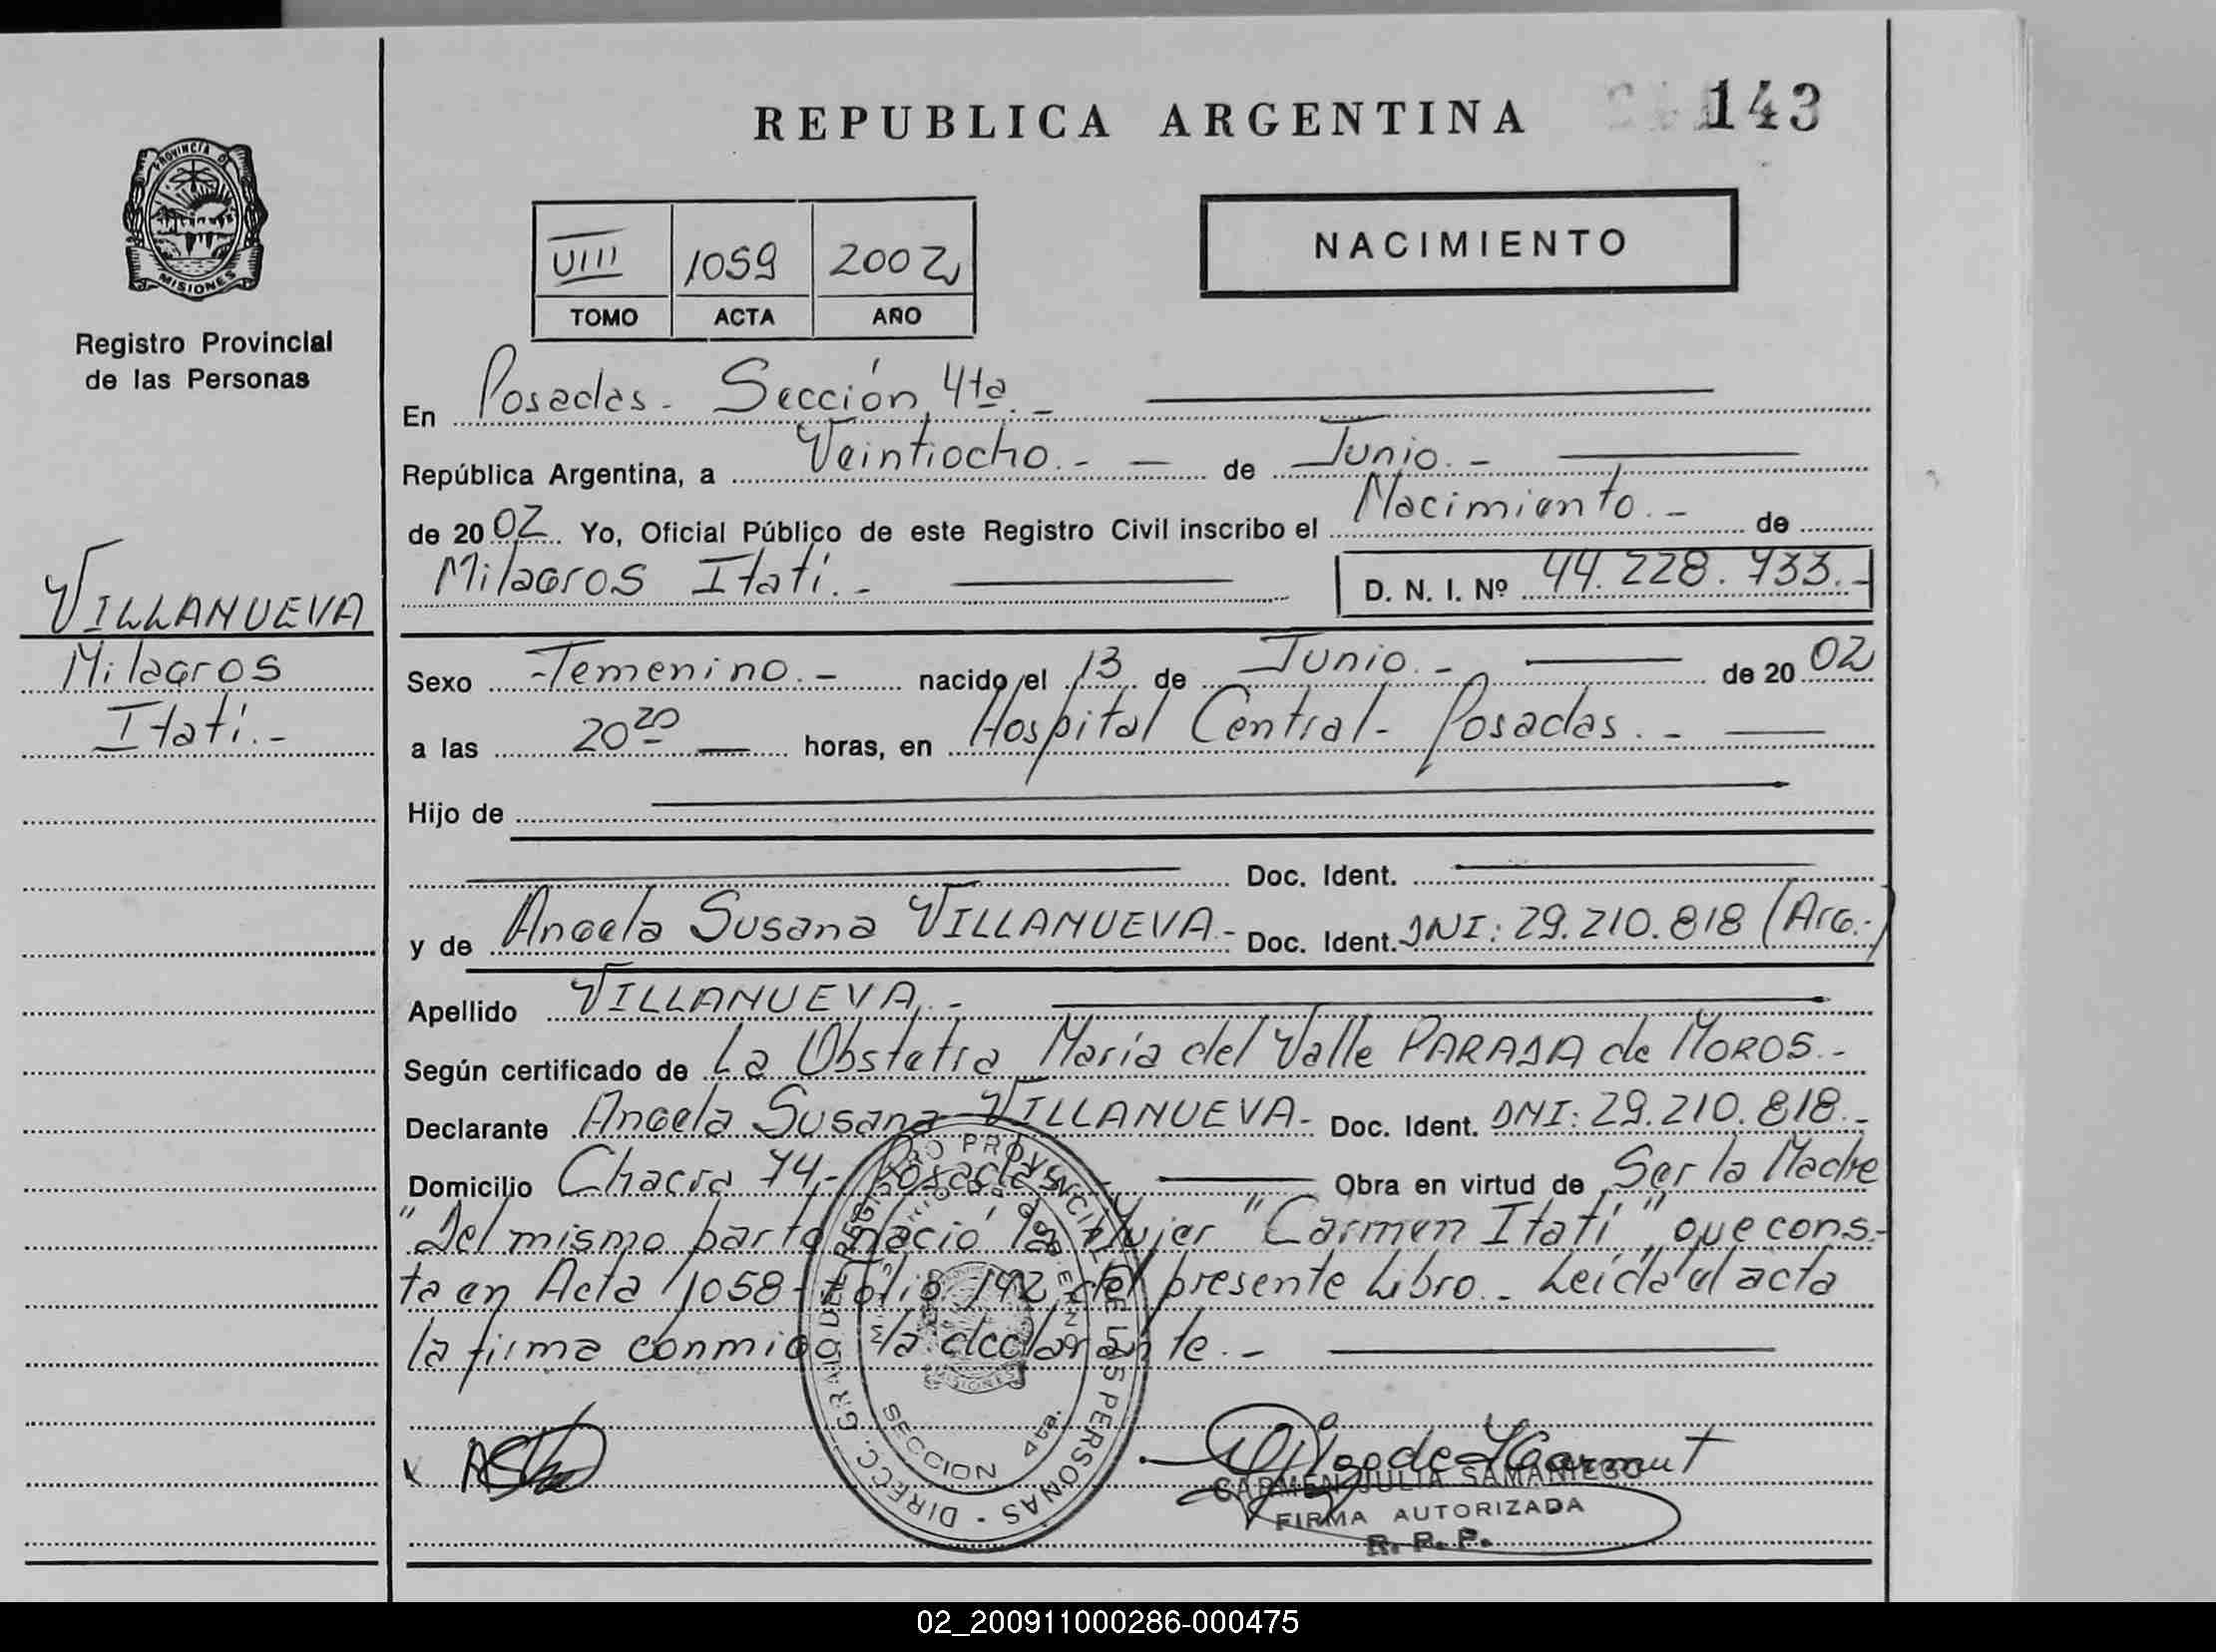 REPUBLICA ARGENTINA
143
PROVINCIA D
MISIONES
Registro Provincial
de las Personas
VIII 1059 2002
TOMO ACTA AÑO
NACIMIENTO
En Posadas - Sección 4ta. -
República Argentina, a Veintiocho. - de Junio. -
de 2002 Yo, Oficial Público de este Registro Civil inscribo el Nacimiento. - de
Milagros Itatí. - D. N. I. Nº 44.228.733. -
VILLANUEVA
Milagros
Itatí. -
Sexo -Femenino. - nacido el 13 de Junio. - de 2002
a las 20 20 horas, en Hospital Central - Posadas. -
Hijo de
Doc. Ident.
y de Angela Susana VILLANUEVA - Doc. Ident. DNI: 29.210.818 (Arg.-)
Apellido VILLANUEVA. -
Según certificado de La Obstetra María del Valle PARADA de MOROS. -
Declarante Angela Susana VILLANUEVA - Doc. Ident. DNI: 29.210.818. -
Domicilio Chacra 74, - Posadas - Obra en virtud de Ser la Madre
"Del mismo parto nació la Mujer "Carmen Itatí" que cons-
ta en Acta 1058 - Folio 142 del presente Libro. - Leída el acta
la firma conmigo la declarante. -
DIRECC. GRAL. DEL REGISTRO PROVINCIAL DE LAS PERSONAS -
MISIONES
SECCION 4ta.
CARMEN JULIA SAMANIEGO
FIRMA AUTORIZADA
R. P. P.
02_200911000286-000475